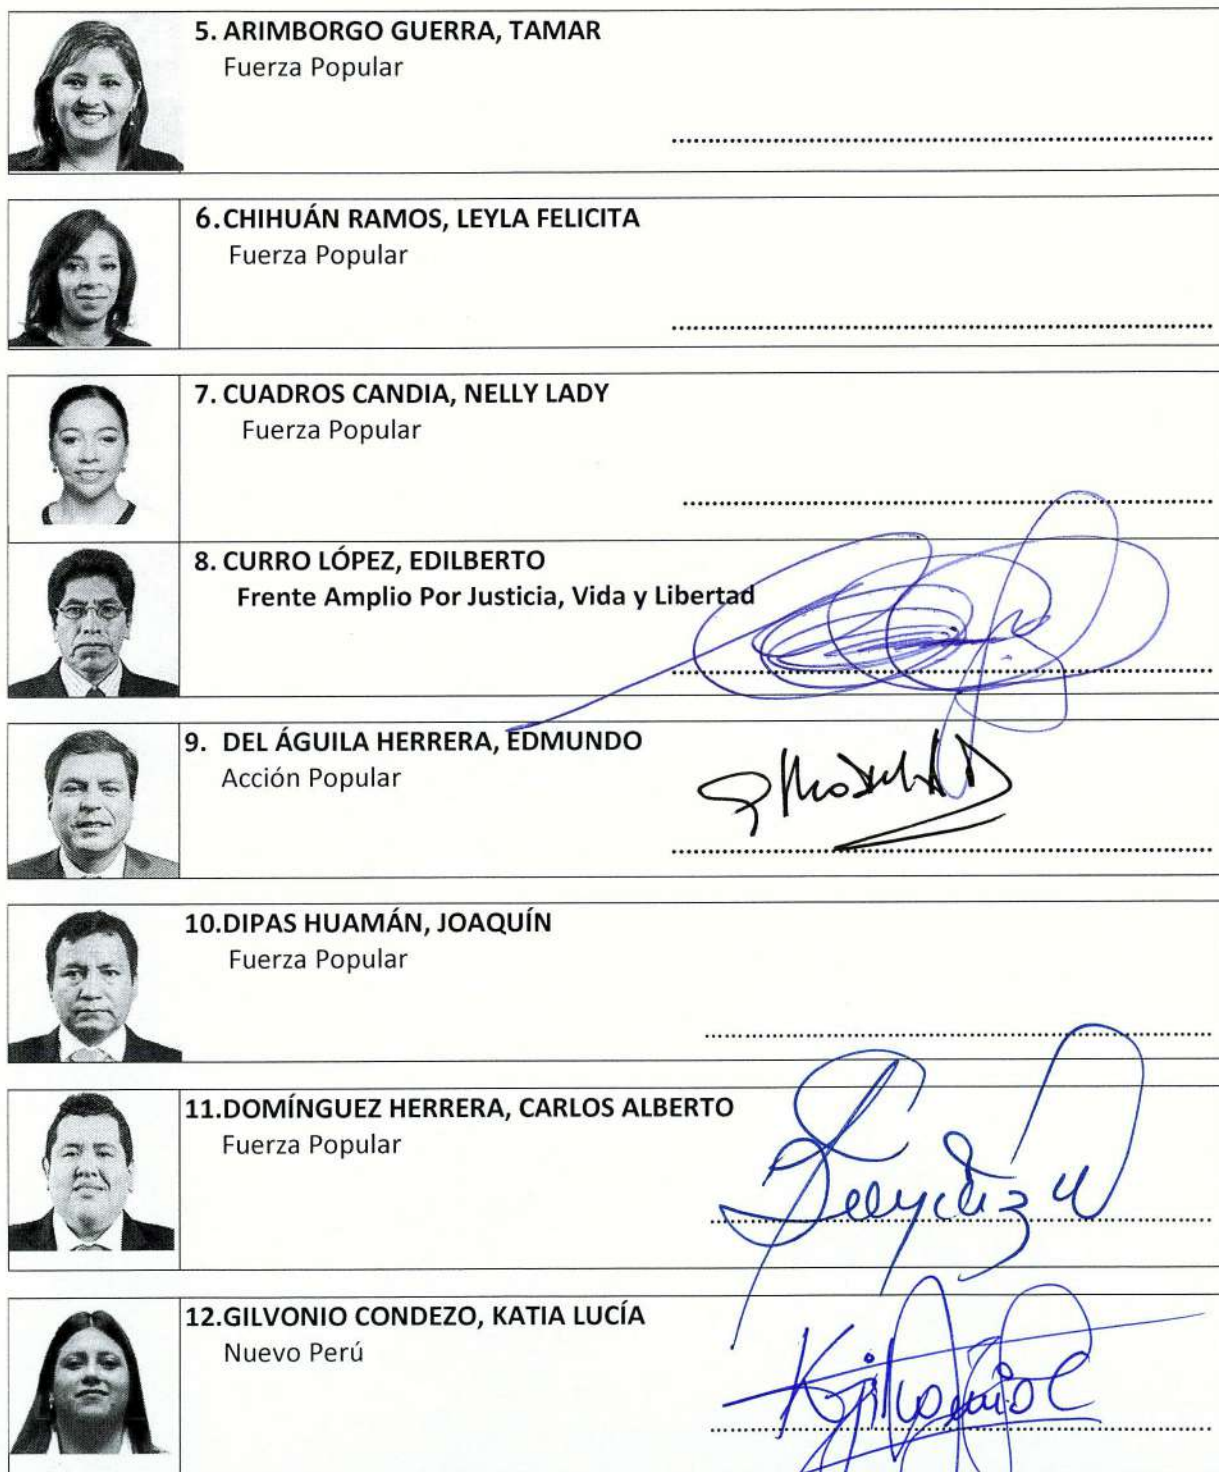 5. ARIMBORGO GUERRA, TAMAR
Fuerza Popular
6.CHIHUÁN RAMOS, LEYLA FELICITA
Fuerza Popular
7. CUADROS CANDIA, NELLY LADY
Fuerza Popular
8. CURRO LÓPEZ, EDILBERTO
Frente Amplio Por Justicia, Vida y Libertad
9. DEL ÁGUILA HERRERA, EDMUNDO
Acción Popular
10.DIPAS HUAMÁN, JOAQUÍN
Fuerza Popular
11.DOMÍNGUEZ HERRERA, CARLOS ALBERTO
Fuerza Popular
12.GILVONIO CONDEZO, KATIA LUCÍA
Nuevo Perú